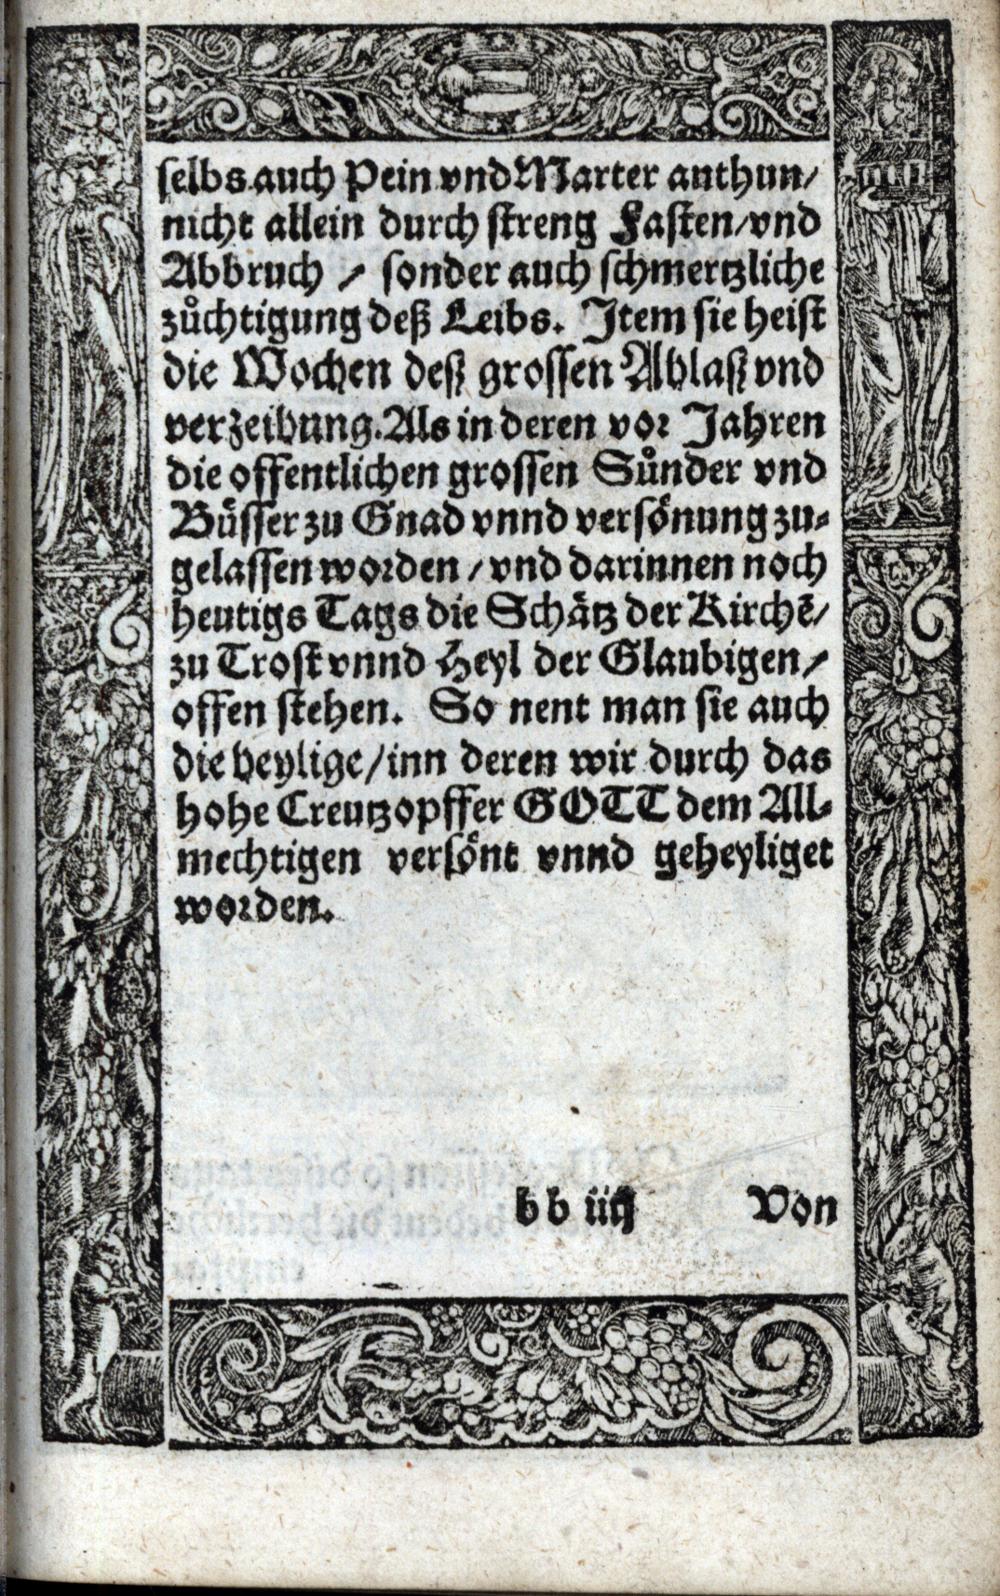 selbs auch Pein vnd Marter anthun/
nicht allein durch streng Fasten/vnd
Abbruch / sonder auch schmertzliche
zůchtigung deß Leibs. Item sie heist
die Wochen deß grossen Ablaß vnd
verzeihung. Als in deren vor Jahren
die offentlichen grossen Sůnder vnd
Büsser zu Gnad vnnd versönung zu-
gelassen worden / vnd darinnen noch
heutigs Tags die Schätz der Kirchē/
zu Trost vnnd Heyl der Glaubigen/
offen stehen. So nent man sie auch
die heylige/inn deren wir durch das
hohe Creutzopffer GOTT dem All-
mechtigen versönt vnnd geheyliget
worden.
bb iiij Von